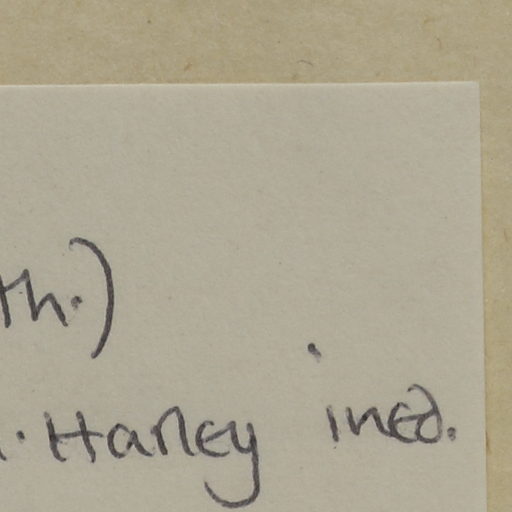 th.)
. Harley ined.